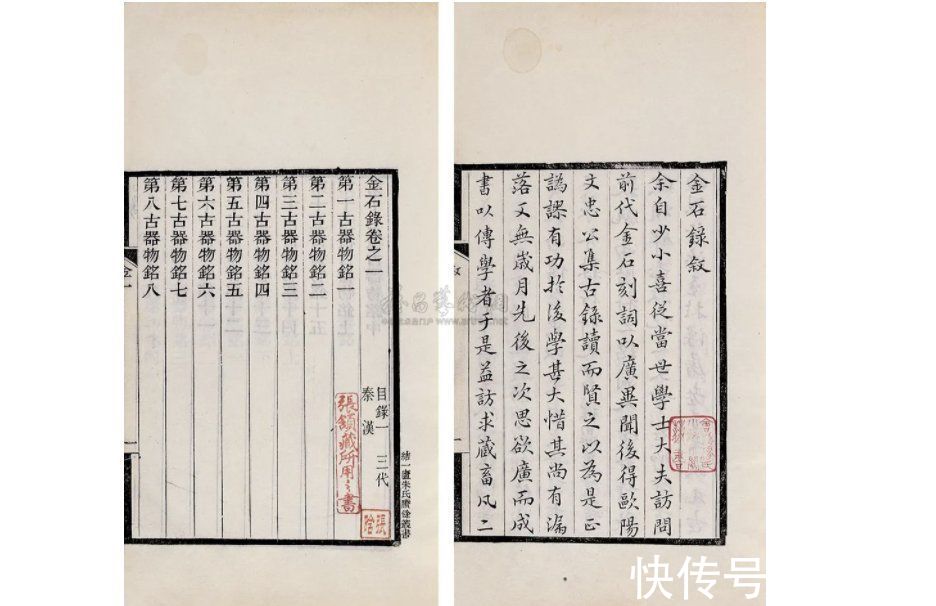 金石錄敘
余自少小喜從當世學士大夫訪問
前代金石刻詞以廣異聞後得歐陽
文忠公集古錄讀而賢之以為是正
譌謬有功於後學甚大惜其尚有漏
落又無歲月先後之次思欲廣而成
書以傳學者于是益訪求藏畜凡二
敘
結一廬朱氏賸餘叢書
金石錄卷之一
目錄一 三代
秦漢
張頷藏所用之書
第一古器物銘一
第二古器物銘二
第三古器物銘三
第四古器物銘四
第五古器物銘五
第六古器物銘六
第七古器物銘七
第八古器物銘八
金一
快传号